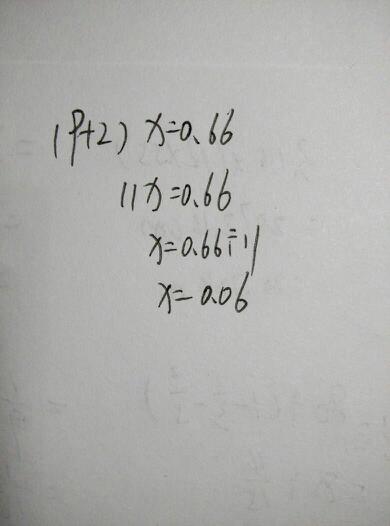 (9+2) x=0.66
11x=0.66
x=0.66÷11
x=0.06